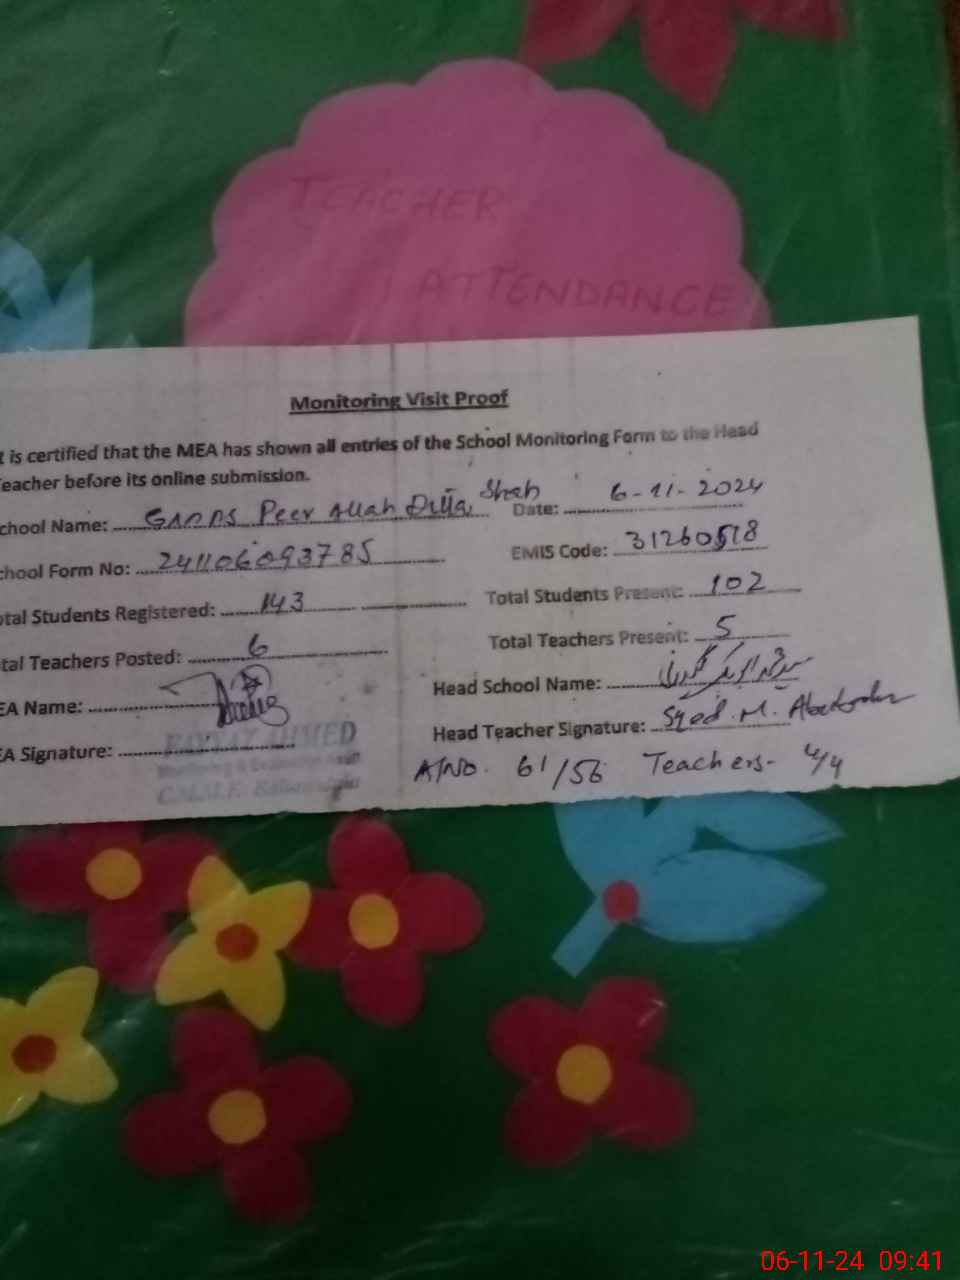 TEACHER
ATTENDANCE
Monitoring Visit Proof
t is certified that the MEA has shown all entries of the School Monitoring Form to the Head
eacher before its online submission.
chool Name: Peer Allah Ditta Shah Date: 6-11-2024
chool Form No: 241106093785 EMIS Code: 31260518
otal Students Registered: 143 Total Students Present: 102
tal Teachers Posted: 6 Total Teachers Present: 5
EA Name: Head School Name:
EA Signature: Head Teacher Signature: Syed M.
AHMED
Monitoring & Evaluation
61/56 Teachers- 4/4
06-11-24 09:41